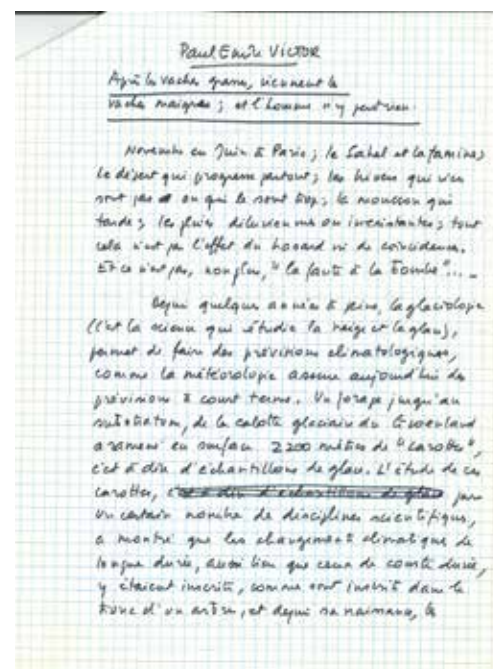 Paul Emile VICTOR
Après les vaches grasses, viennent les
vaches maigres ; et l'homme n'y peut rien.
Novembre en Juin à Paris ; le Sahel et la famine ;
le désert qui progresse partout ; les hivers qui n'en
sont pas ou qui le sont trop ; la mousson qui
tarde ; les pluies diluviennes ou inexistantes ; tout
cela n'est pas l'effet du hasard ni de coïncidences.
Et ce n'est pas, non plus, "la faute à la Bombe"...
Depuis quelques années à peine, la glaciologie
(c'est la science qui étudie la neige et la glace),
permet de faire des prévisions climatologiques,
comme la météorologie assure aujourd'hui des
prévisions à court terme. Un forage jusqu'au
substratum, de la calotte glaciaire du Groenland
a ramené en surface 2200 mètres de "carottes",
c'est à dire d'échantillons de glace. L'étude de ces
carottes, c'est à dire d'échantillons de glace par
un certain nombre de disciplines scientifiques,
a montré que les changements climatiques de
longue durée, aussi bien que ceux de courte durée,
y étaient inscrits, comme sont inscrits dans le
tronc d'un arbre, et depuis sa naissance, les